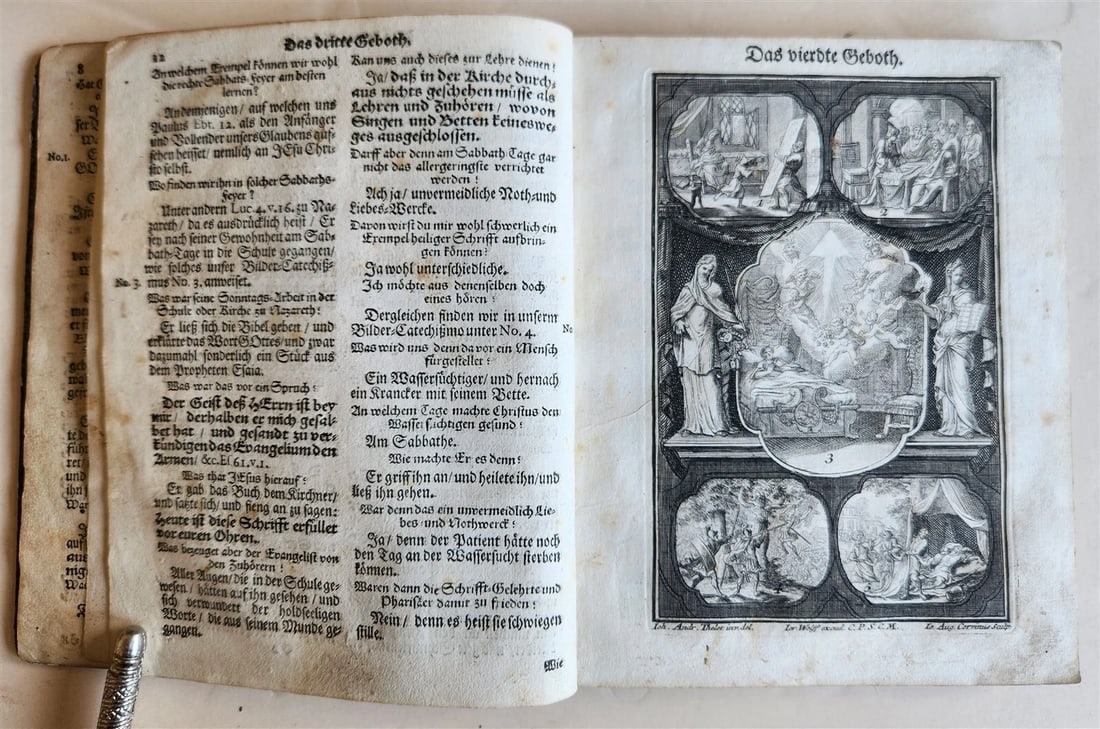 Das dritte Geboth.
12
An welchem Exempel können wir wohl
die rechte Sabbats-Feyer am besten
lernen?
An demjenigen / auf welchen uns
Paulus Ebr. 12. als den Anfänger
und Vollender unsers Glaubens auf-
sehen heisset / nemlich an JEsu Chri-
sto selbst.
Wo finden wir ihn in solcher Sabbaths-
Feyer?
Unter andern Luc. 4. v. 16. zu Na-
zareth / da es ausdrücklich heist / Er
sey nach seiner Gewohnheit am Sab-
bath-Tage in die Schule gegangen /
wie solches unser Bilder-Catechiß-
No. 3. mus No. 3. anweiset.
Was war seine Sonntags-Arbeit in der
Schule oder Kirche zu Nazareth?
Er ließ sich die Bibel geben / und
erklärte das Wort GOttes / und zwar
dazumahl sonderlich ein Stück aus
dem Propheten Esaia.
Was war das vor ein Spruch?
Der Geist deß HErrn ist bey
mir / derhalben er mich gesal-
bet hat / und gesandt zu ver-
kündigen das Evangelium den
Armen / &c. Es. 61. v. 1.
Was that JEsus hierauf?
Er gab das Buch dem Kirchner /
und satzte sich / und fieng an zu sagen:
Heute ist diese Schrifft erfüllet
vor euren Ohren.
Was bezeuget aber der Evangelist von
den Zuhörern?
Aller Augen / die in der Schule ge-
wesen / hätten auf ihn gesehen / und
sich verwundert der holdseeligen
Worte / die aus seinem Munde ge-
gangen.
Kan uns auch dieses zur Lehre dienen?
Ja / daß in der Kirche durch-
aus nichts geschehen müsse als
Lehren und Zuhören / wovon
Singen und Betten keineswe-
ges ausgeschlossen.
Darff aber denn am Sabbath-Tage gar
nicht das allergeringste verrichtet
werden?
Ach ja / unvermeidliche Noth- und
Liebes-Wercke.
Davon wirst du mir wohl schwerlich ein
Exempel heiliger Schrifft aufbrin-
gen können?
Ja wohl unterschiedliche.
Ich möchte aus denenselben doch
eines hören?
Dergleichen finden wir in unserm
Bilder-Catechißmo unter No. 4. No
Was wird uns denn da vor ein Mensch
fürgestellet?
Ein Wassersüchtiger / und hernach
ein Krancker mit seinem Bette.
An welchem Tage machte Christus den
Wassersüchtigen gesund?
Am Sabbathe.
Wie machte Er es denn?
Er griff ihn an / und heilete ihn / und
ließ ihn gehen.
War denn das ein unvermeidlich Lie-
bes- und Nothwerck?
Ja / denn der Patient hätte noch
den Tag an der Wassersucht sterben
können.
Waren dann die Schrifft-Gelehrte und
Pharisäer damit zu frieden?
Nein / denn es heist sie schwiegen
stille.
Wie
8
No. 1.
Das vierdte Geboth.
2
3
4
Joh. Andr. Thelot inv. del. Ier. Wolff excud. C. P. S. C. M. Io. Aug. Corvinus Sculp.